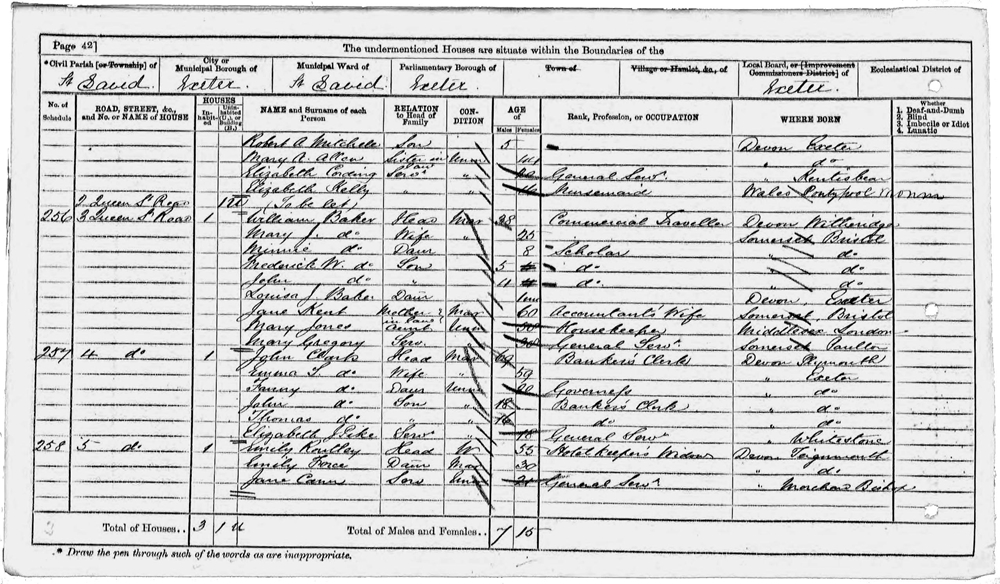 Page 42]
The undermentioned Houses are situate within the Boundaries of the
*Civil Parish [or Township] of
City or Municipal Borough of
Municipal Ward of
Parliamentary Borough of
Town of
Village or Hamlet, &c., of
Local Board, or [Improvement Commissioners District] of
Ecclesiastical District of
St David Exeter St David Exeter Exeter
No. of Schedule
ROAD, STREET, &c., and No. or NAME of HOUSE
HOUSES
Inhabited
Uninhabited (U.), or Building (B.)
NAME and Surname of each Person
RELATION to Head of Family
CONDITION
AGE of
Males Females
Rank, Profession, or OCCUPATION
WHERE BORN
Whether
1. Deaf-and-Dumb
2. Blind
3. Imbecile or Idiot
4. Lunatic
Robert A. Mitchell Son 5 Devon Exeter
Mary A. Allen Sister in law Unm „ do
Elizabeth Cording Servt „ General Servt „ Kentisbear
Elizabeth Kelly „ „ Nursemaid Wales Pontypool
2 Queen St Road 1U (To be let)
256 3 Queen St Road 1 William Baker Head Mar 38 Commercial Traveller Devon Witheridge
Mary J. do Wife „ 25 Somerset Bristol
Minnie do Daur 8 Scholar „ do
Frederick W. do Son 5 do „ do
John do „ 4 do „ do
Louisa J. Baker Daur 1 mo Devon, Exeter
Jane Kent Mother in law Mar 60 Accountant's Wife Somerset, Bristol
Mary Jones Aunt Unm 50 Housekeeper Middlesex London
Mary Gregory Serv. 20 General Servt Somerset Paulton
257 4 do 1 John Clark Head Mar 69 Banker's Clerk Devon Plymouth
Emma S. do Wife „ 59 „ Exeter
Fanny do Daur Unm 20 Governess „ do
John do Son „ 18 Banker's Clerk „ do
Thomas do „ 16 do „ do
Elizabeth J Pike Servt „ 18 General Servt „ Whitestone
258 5 do 1 Emily Routley Head W. 55 Hotel Keeper's Widow Devon Teignmouth
Emily Force Daur Mar 30 „ do
Jane Cann Serv Unm 21 General Servt „ Morchard Bishop
Total of Houses.. 3 1 U Total of Males and Females.. 7 15
* Draw the pen through such of the words as are inappropriate.